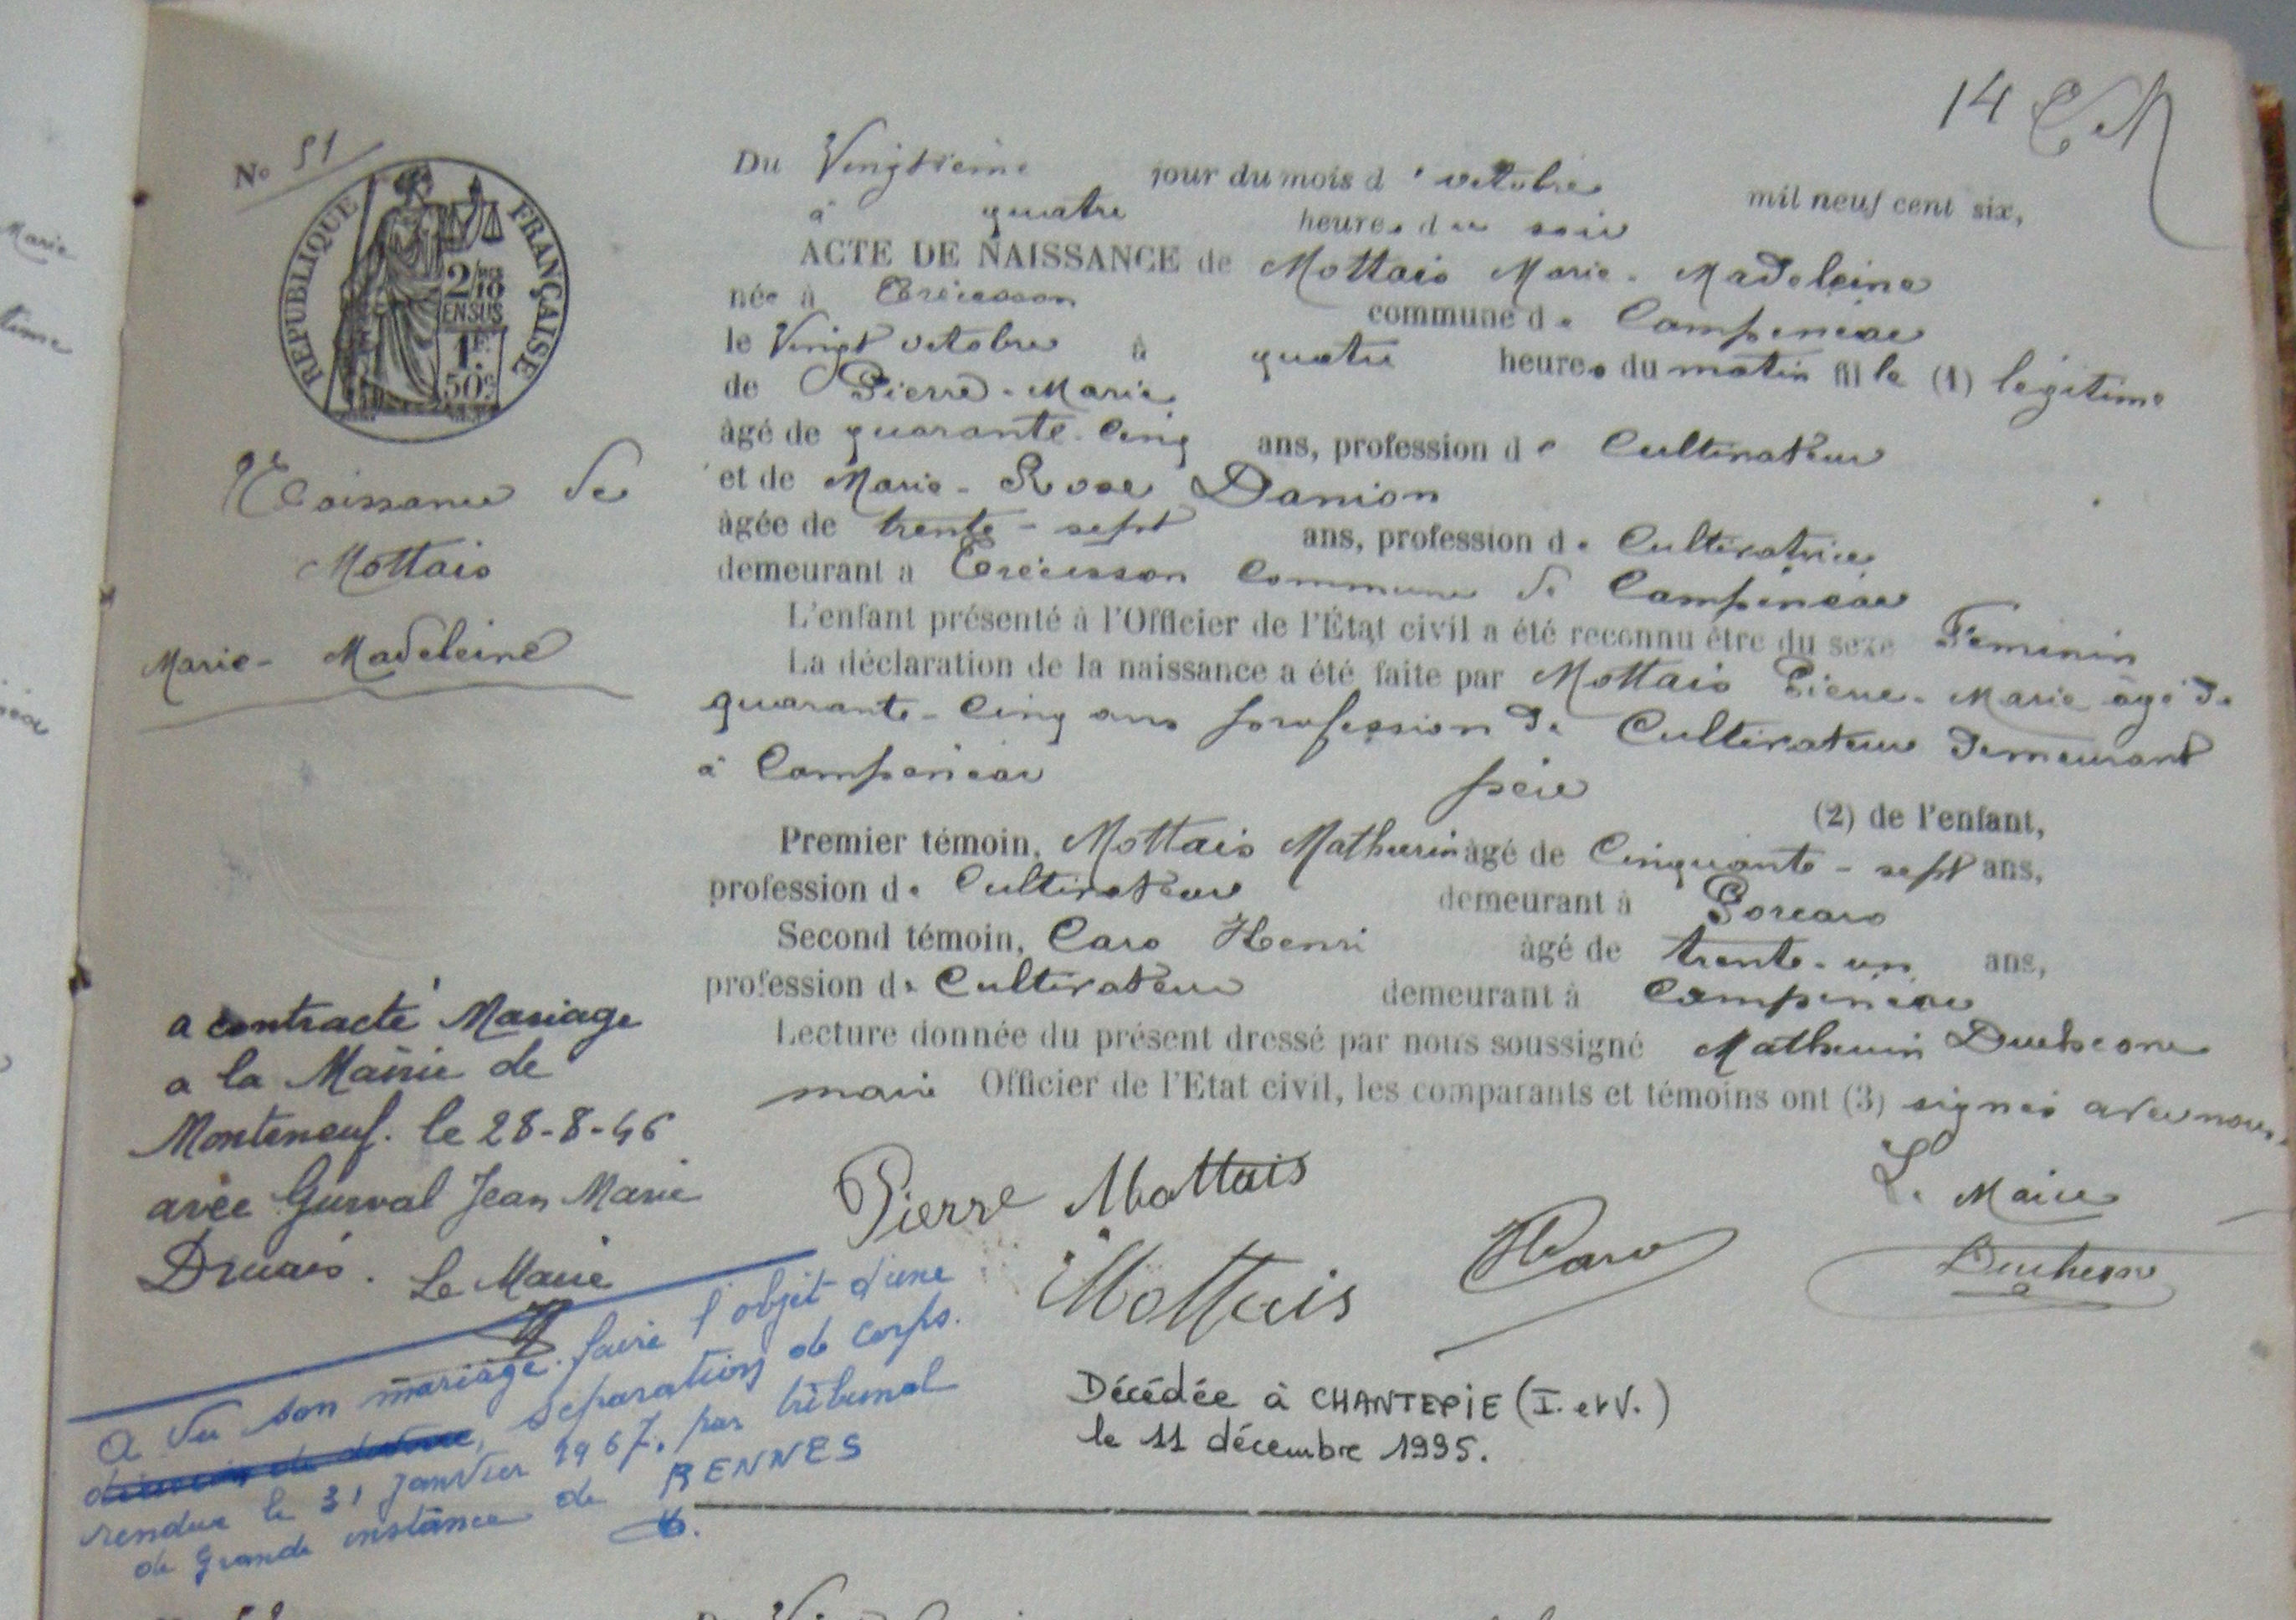 14
N° 51
RÉPUBLIQUE FRANÇAISE
2/10 EN SUS
1F. 50c
Naissance de
Mottais
Marie-Madeleine
Du Vingtième jour du mois d'octobre mil neuf cent six,
à quatre heures du soir
ACTE DE NAISSANCE de Mottais Marie-Madeleine
née à Trécesson commune de Campénéac
le Vingt octobre à quatre heures du matin fille (1) légitime
de Pierre-Marie
âgé de quarante-cinq ans, profession de Cultivateur
et de Marie-Rose Danion
âgée de trente-sept ans, profession de Cultivatrice
demeurant à Trécesson Commune de Campénéac
L'enfant présenté à l'Officier de l'État civil a été reconnu être du sexe Féminin
La déclaration de la naissance a été faite par Mottais Pierre-Marie âgé de
quarante-cinq ans profession de Cultivateur demeurant
à Campénéac père (2) de l'enfant,
Premier témoin, Mottais Mathurin âgé de Cinquante-sept ans,
profession de Cultivateur demeurant à Porcaro
Second témoin, Caro Henri âgé de trente-un ans,
profession de Cultivateur demeurant à Campénéac
Lecture donnée du présent dressé par nous soussigné Mathurin Duchesne
maire Officier de l'Etat civil, les comparants et témoins ont (3) signés avec nous.
Pierre Mottais
Mottais
HCaro
Le Maire
Duchesne
a contracté Mariage
a la Mairie de
Monteneuf. le 28-8-46
avec Gurval Jean Marie
Druais. Le Maire
A vu son mariage faire l'objet d'une
séparation de corps.
rendue le 31 janvier 1967, par tribunal
de Grande instance de RENNES
Décédée à CHANTEPIE (I. et V.)
le 11 décembre 1995.